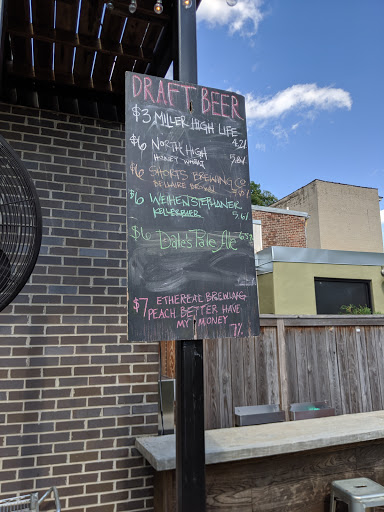 DRAFT BEER
$3 MILLER HIGH LIFE
$6 NORTH HIGH
HONEY WHEAT
$6 SHORTS BREWING CO
BELLAIRE BROWN
$6 WEIHENSTEPHANER
KELLERBIER 5.6%
$6 Dale's Pale Ale
$7 ETHEREAL BREWING
PEACH BETTER HAVE
MY MONEY
7%